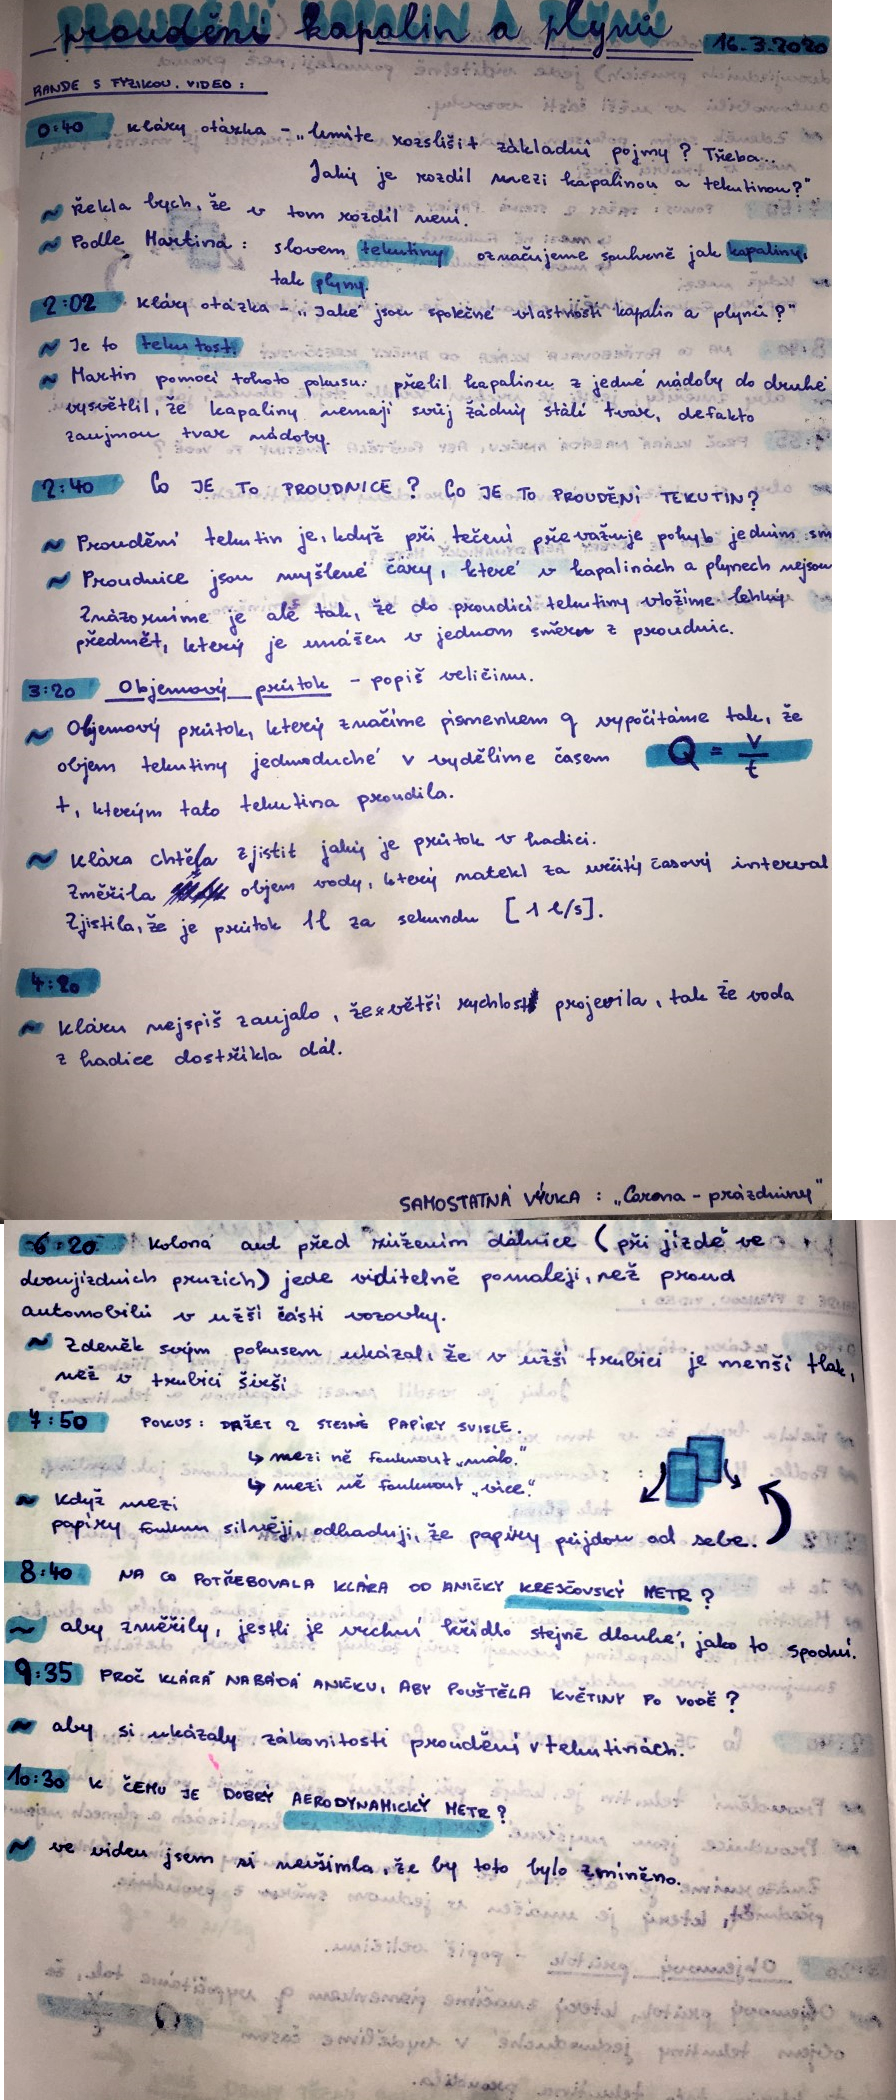 proudění kapalin a plynů
16.3.2020
RANDE S FYZIKOU. VIDEO:
0:40 Kláry otázka - „Umíte rozslišit základní pojmy? Třeba..
Jaký je rozdíl mezi kapalinou a tekutinou?"
~ Řekla bych, že v tom rozdíl není.
~ Podle Martina: slovem tekutiny označujeme souhrně jak kapaliny,
tak plyny.
2:02 Kláry otázka - „Jaké jsou společné vlastnosti kapalin a plynů?"
~ Je to tekutost.
~ Martin pomocí tohoto pokusu: přelil kapalinu z jedné nádoby do druhé
vysvětlil, že kapaliny nemají svůj žádný stálí tvar, defakto
zaujmou tvar nádoby.
2:40 CO JE TO PROUDNICE? CO JE TO PROUDĚNÍ TEKUTIN?
~ Proudění tekutin je, když při tečení převažuje pohyb jedním sm
~ Proudnice jsou myšlené čáry, které v kapalinách a plynech nejsou
Znázorníme je ale tak, že do proudící tekutiny vložíme lehký
předmět, který je unášen v jednom směru z proudnic.
3:20 Objemový průtok - popiš veličinu.
~ Objemový průtok, který značíme písmenkem q vypočítáme tak, že
objem tekutiny jednoduché v vydělíme časem Q = V/t
t, kterým tato tekutina proudila.
~ Klára chtěla zjistit jaký je průtok v hadici.
Změřila objem vody, který natekl za určitý časový interval
Zjistila, že je průtok 1l za sekundu [1 l/s].
4:20
~ Kláru nejspíš zaujalo, že větší rychlost projevila, tak že voda
z hadice dostříkla dál.
SAMOSTATNÁ VÝUKA: „Corona - prázdniny"
6:20 Kolona aut před zúžením dálnice (při jízdě ve
dvoujízdních pruzích) jede viditelně pomaleji, než proud
automobilů v užší části vozovky.
~ Zdeněk svým pokusem ukázal, že v užší trubici je menší tlak,
než v trubici širší
7:50 POKUS: DRŽET 2 STEJNÉ PAPÍRY SVISLE.
↳ mezi ně fouknout „málo."
↳ mezi ně fouknout „více."
~ Když mezi
papíry foukum silněji, odhaduji, že papíry půjdou od sebe.
8:40 NA CO POTŘEBOVALA KLÁRA OD ANIČKY KREJČOVSKÝ METR?
~ aby změřily, jestli je vrchní křídlo stejně dlouhé, jako to spodní.
9:35 PROČ KLÁRÁ NABÁDÁ ANIČKU, ABY POUŠTĚLA KVĚTINY PO VODĚ?
~ aby si ukázaly zákonitosti proudění v tekutinách.
10:30 K ČEMU JE DOBRÝ AERODYNAMICKÝ METR?
~ ve videu jsem si nevšimla, že by toto bylo zmíněno.